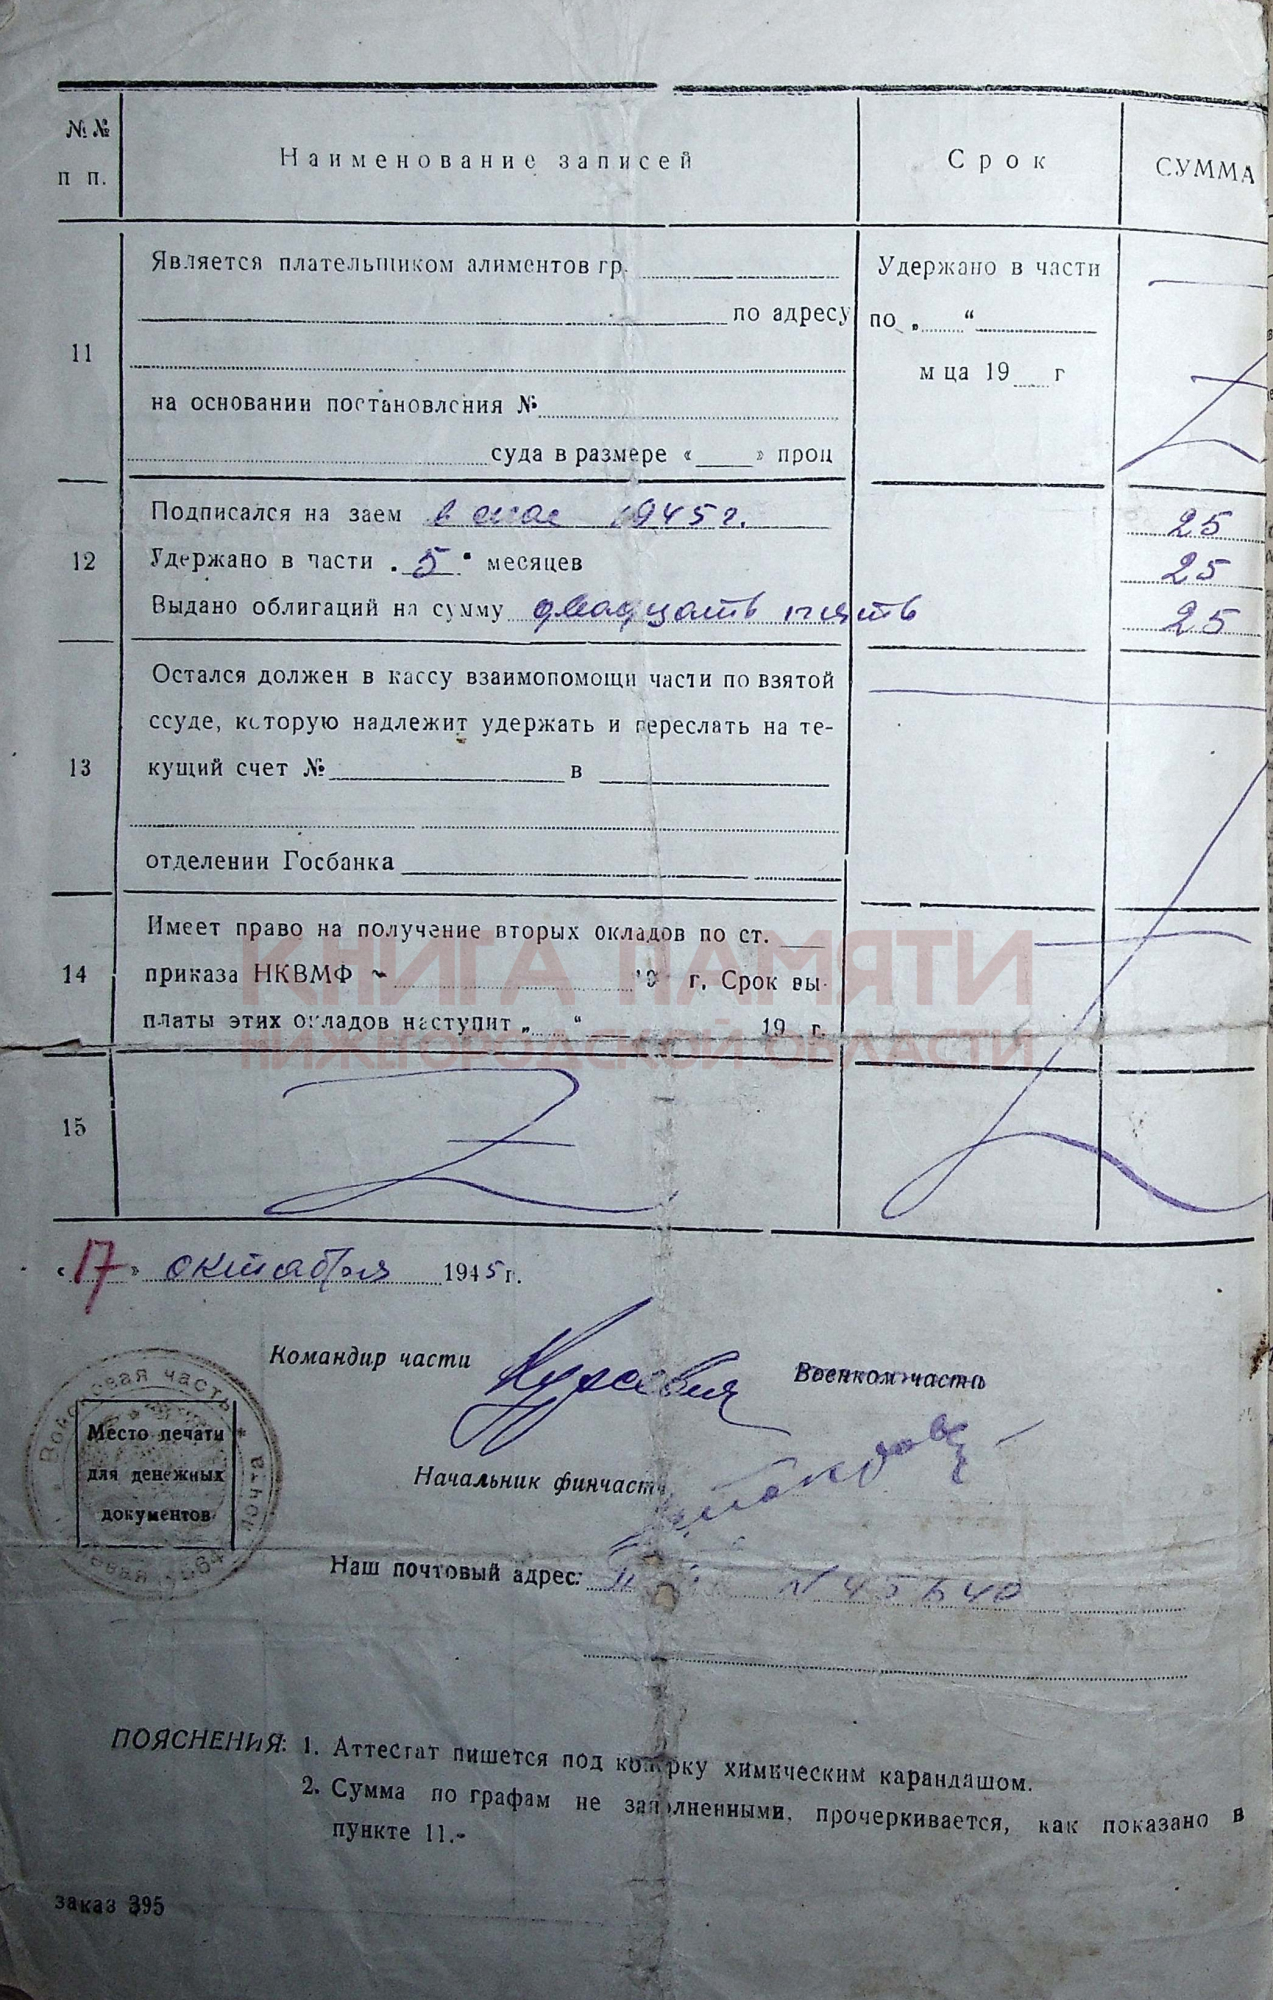 № №
п п.
Наименование записей
Срок
СУММА
11
Является плательщиком алиментов гр.
по адресу
на основании постановления №
суда в размере « » проц
Удержано в части
по „ “
м ца 19 г
12
Подписался на заем в мае 1945 г.
25
Удержано в части „5“ месяцев
25
Выдано облигаций на сумму двадцать пять
25
13
Остался должен в кассу взаимопомощи части по взятой
ссуде, которую надлежит удержать и переслать на те-
кущий счет № в
отделении Госбанка
14
Имеет право на получение вторых окладов по ст.
приказа НКВМФ 19 г. Срок вы-
платы этих окладов наступит „ “ 19 г.
КНИГА ПАМЯТИ
НИЖЕГОРОДСКОЙ ОБЛАСТИ
15
«17» октября 1945 г.
Командир части
Военком части
Войсковая часть
Место печати
для денежных
документов
Начальник финчасти
Наш почтовый адрес: N 45640
ПОЯСНЕНИЯ: 1. Аттестат пишется под копирку химическим карандашом.
2. Сумма по графам не заполненными, прочеркивается, как показано в
пункте 11.-
заказ 395